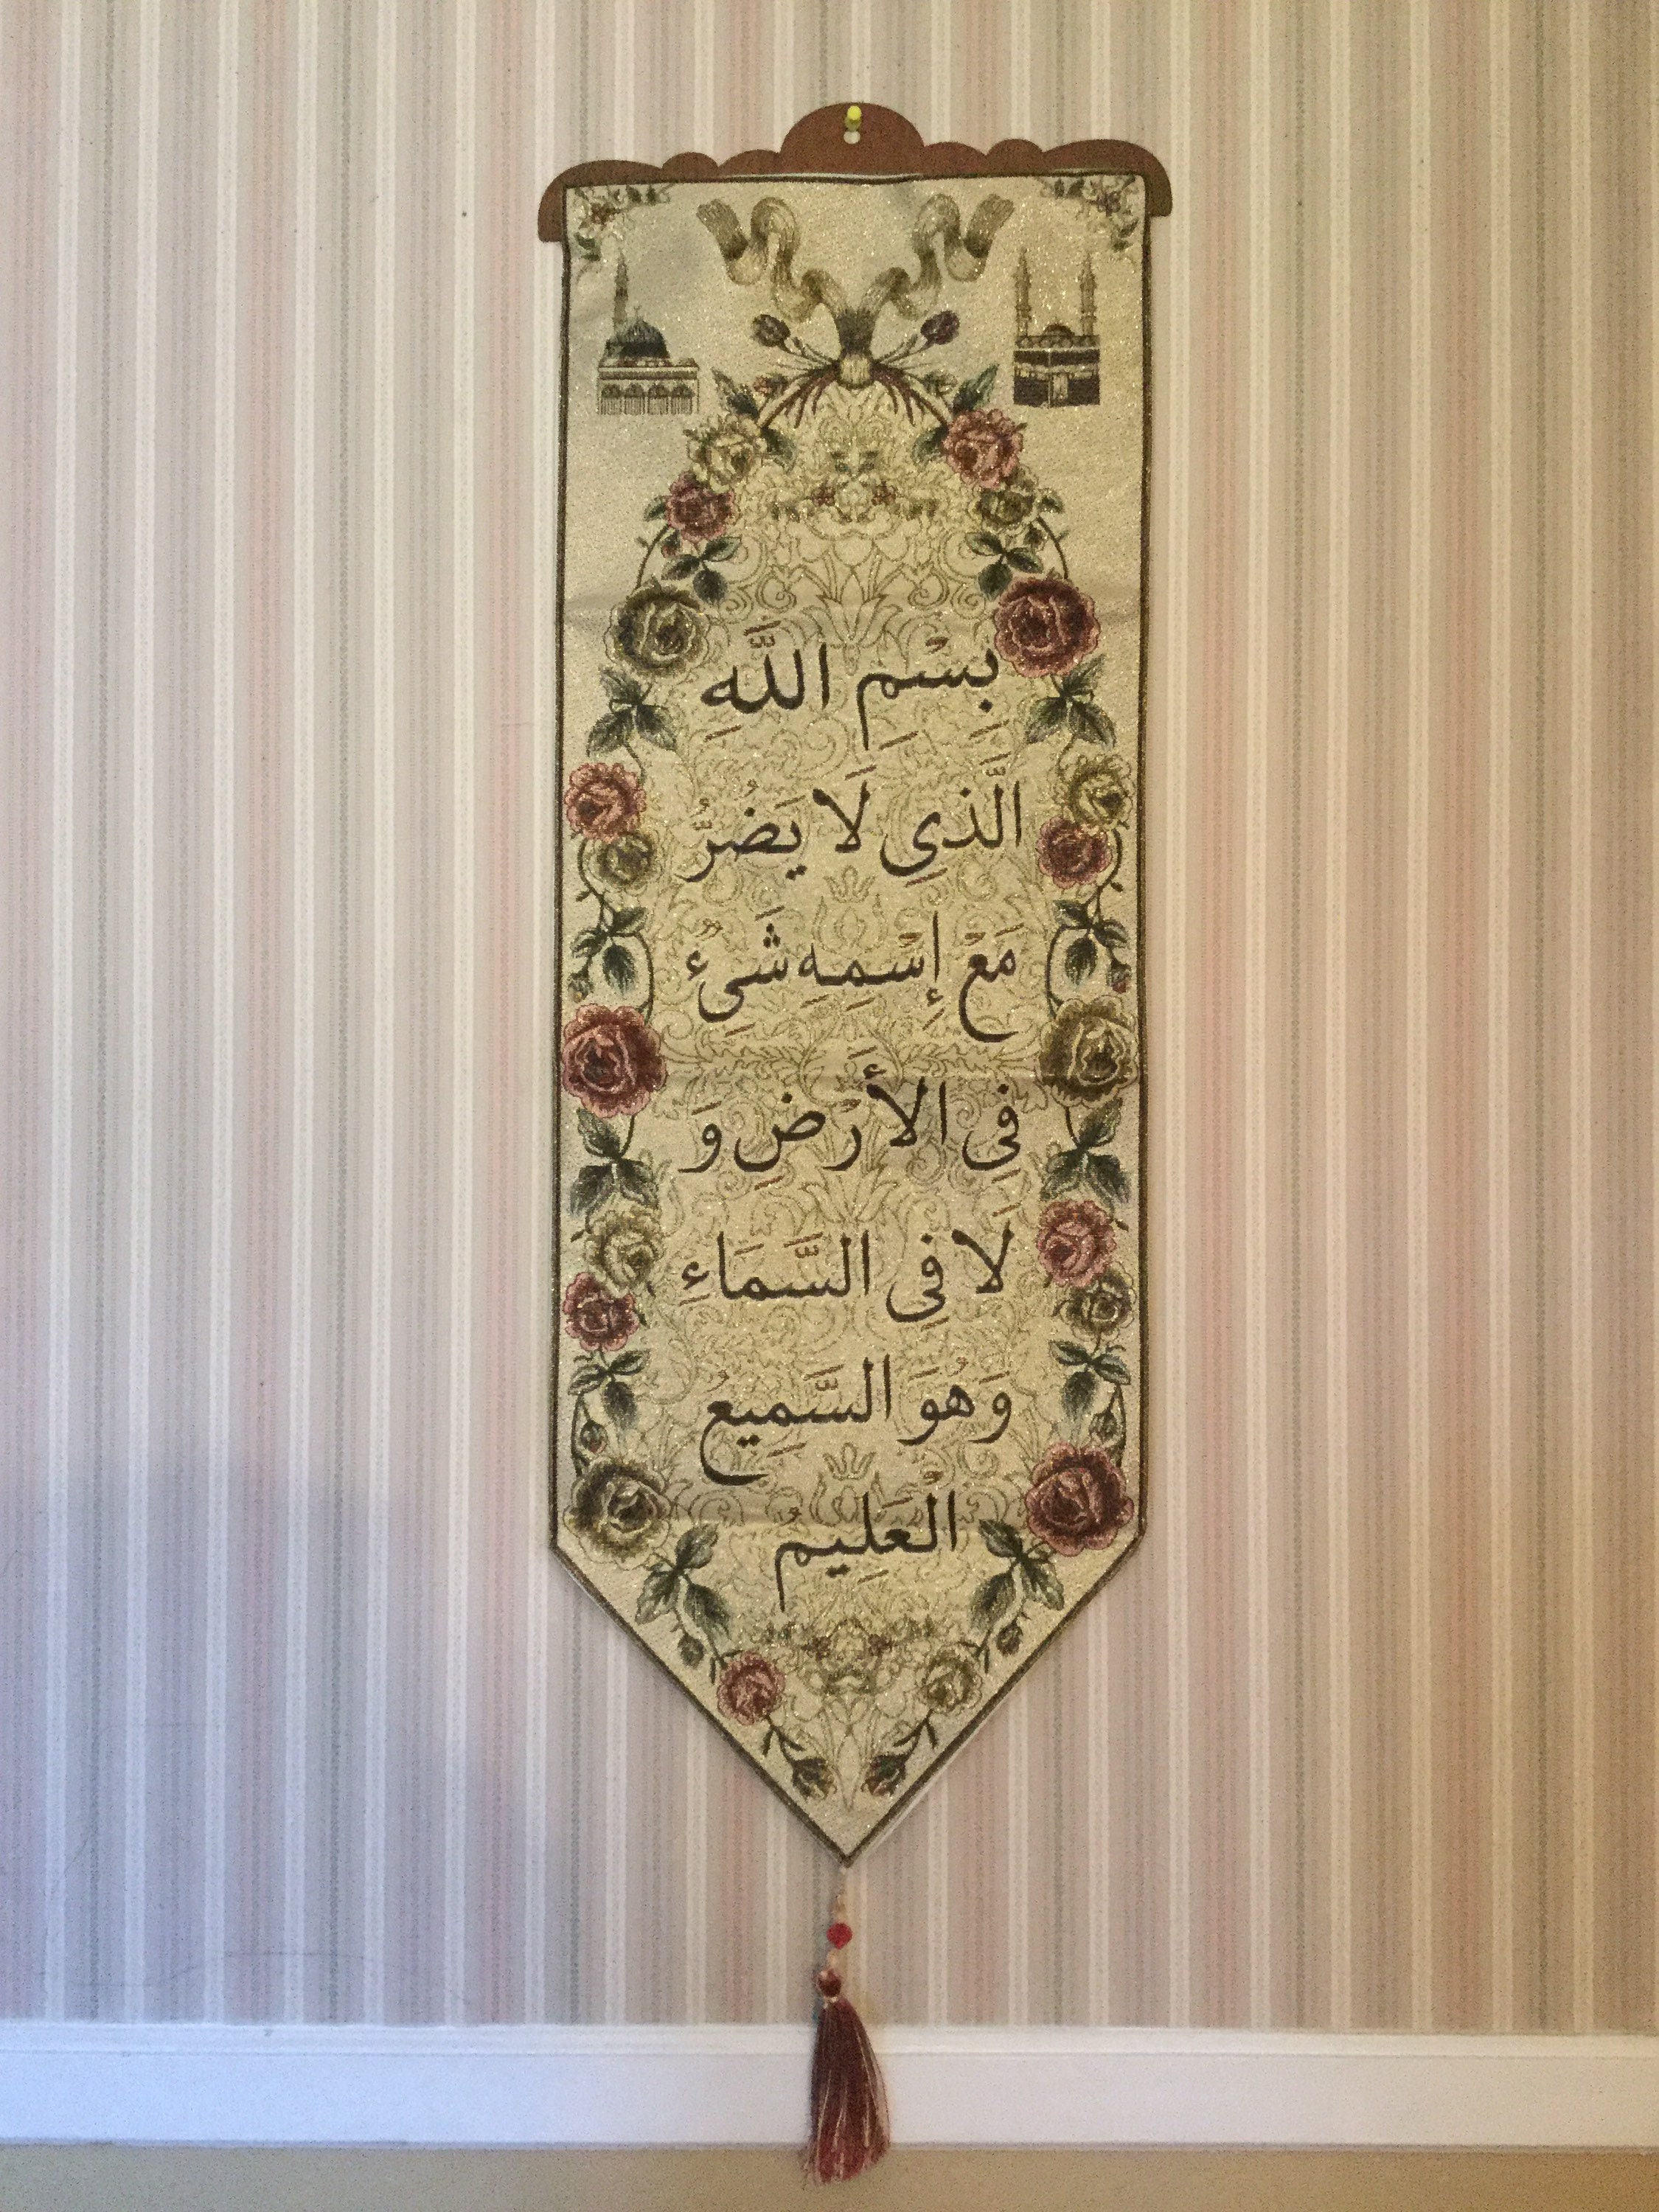 بِسْمِ اللَّهِ
الَّذِى لَا يَضُرُّ
مَعْ إِسْمِهِ شَىِءٌ
فِى الأَرْضِ وَ
لَا فِى السَّمَاءِ
وَهُوَ السَّمِيعُ
الْعَلِيمُ